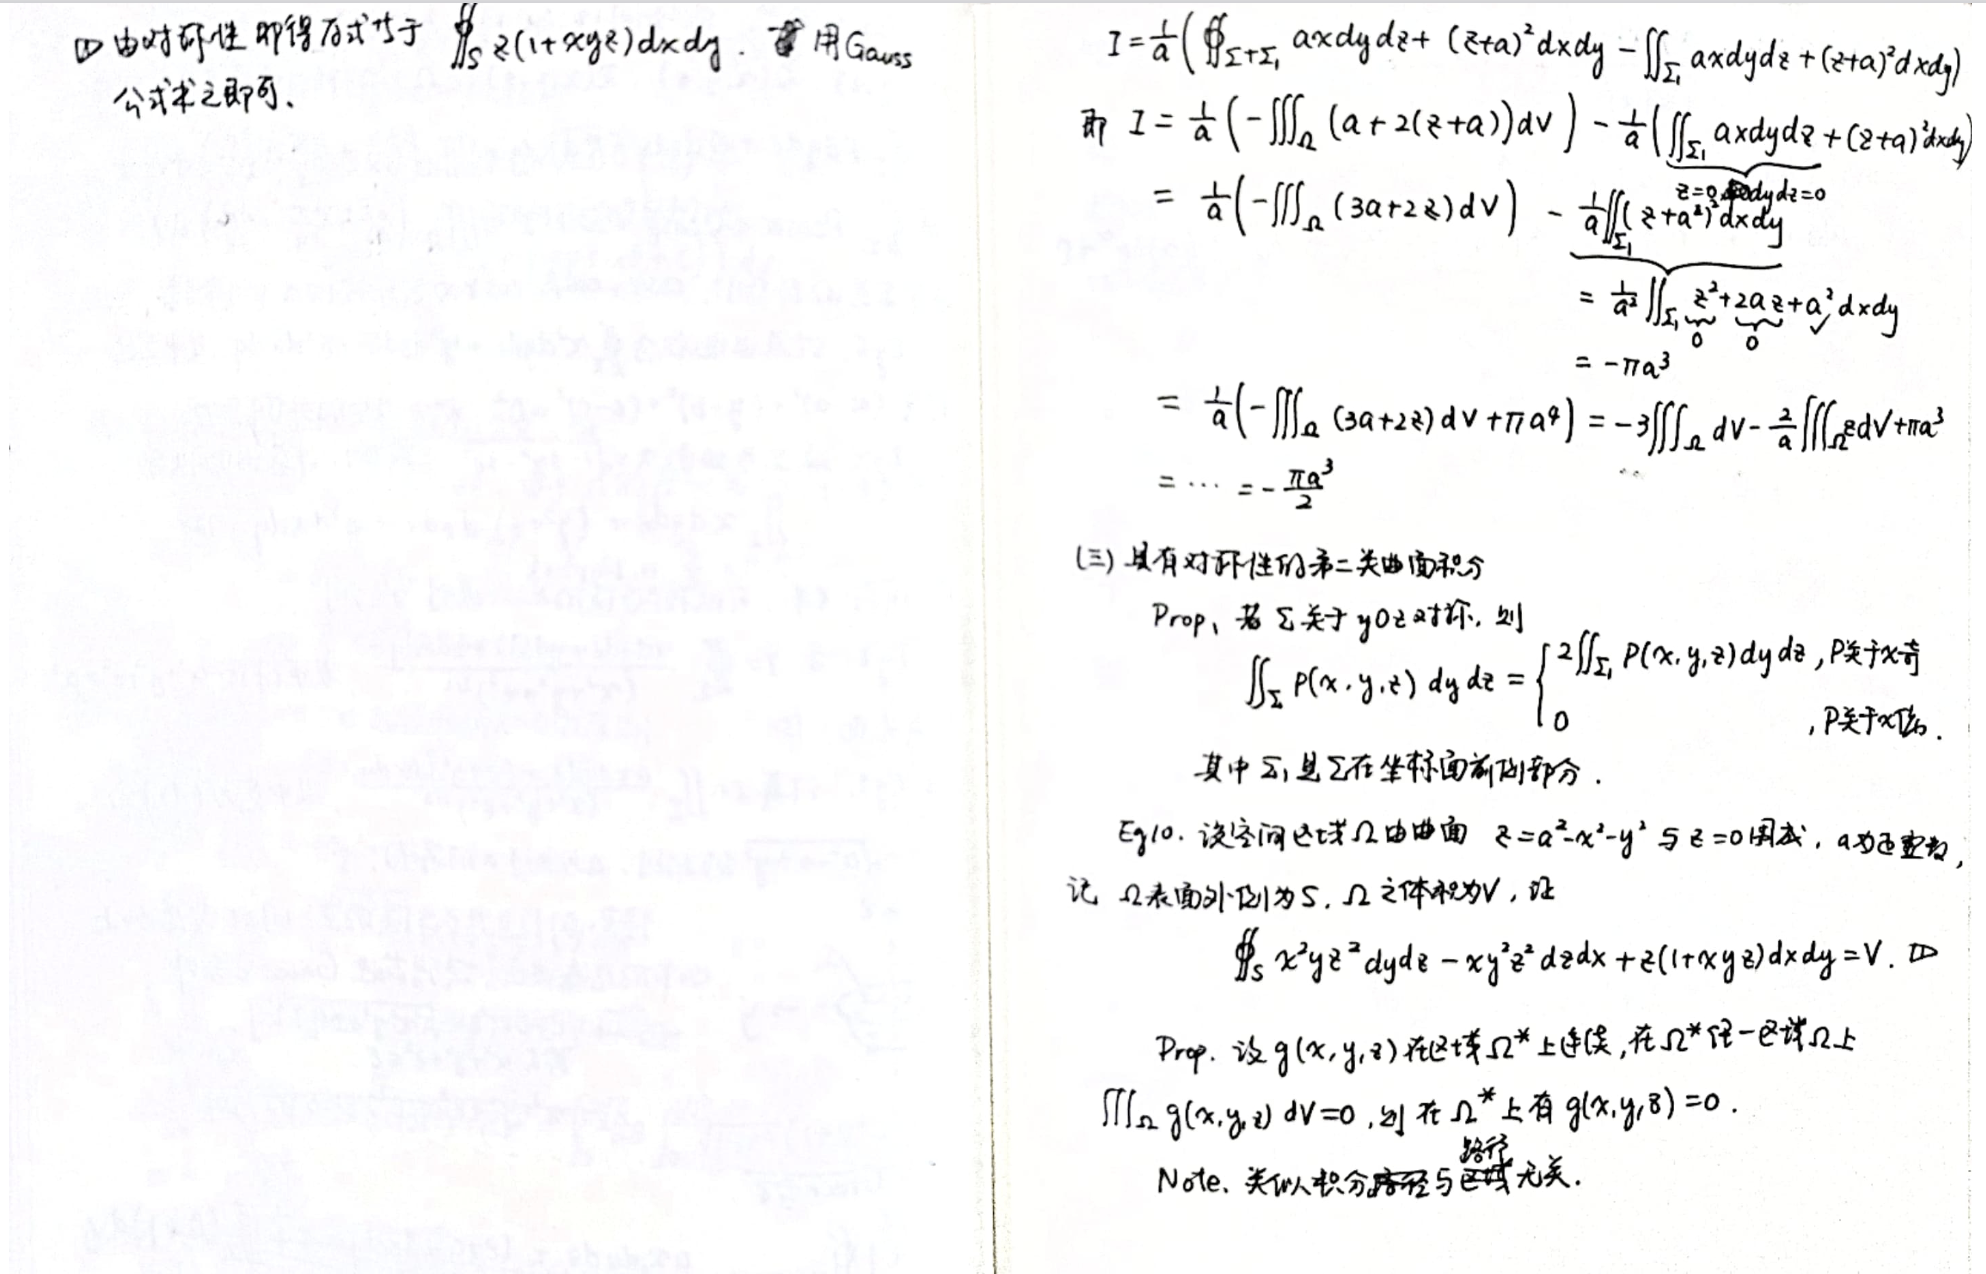 ▷ 由对称性即得原式等于 ∯_S z(1+xyz)dxdy. 用Gauss
公式求之即可.
I = 1/a ( ∯_{Σ+Σ₁} axdydz + (z+a)²dxdy - ∬_{Σ₁} axdydz + (z+a)²dxdy )
即 I = 1/a ( -∭_Ω (a+2(z+a))dV ) - 1/a ( ∬_{Σ₁} axdydz + (z+a)²dxdy )
z=0, dydz=0
= 1/a ( -∭_Ω (3a+2z)dV ) - 1/a ∬_{Σ₁} (z+a²)² dxdy
= 1/a² ∬_{Σ₁} z²+2az+a² dxdy
0 0
= -πa³
= 1/a ( -∭_Ω (3a+2z)dV + πa⁴ ) = -3∭_Ω dV - 2/a ∭_Ω zdV + πa³
= ⋯ = -πa³/2
(三) 具有对称性的第二类曲面积分
Prop. 若 Σ 关于 yOz 对称, 则
∬_Σ P(x,y,z) dydz = { 2∬_{Σ₁} P(x,y,z)dydz, P关于x奇
0 , P关于x偶.
其中 Σ₁ 是 Σ 在坐标面前侧部分.
Eg10. 设空间区域Ω由曲面 z=a²-x²-y² 与 z=0 围成, a为正常数,
记 Ω表面外侧为S, Ω之体积为V, 证
∯_S x²yz²dydz - xy²z²dzdx + z(1+xyz)dxdy = V. ▷
Prop. 设 g(x,y,z) 在区域Ω*上连续, 在Ω*任一区域Ω上
∭_Ω g(x,y,z) dV=0, 则 在 Ω* 上有 g(x,y,z)=0.
路径
Note. 类似积分与无关.